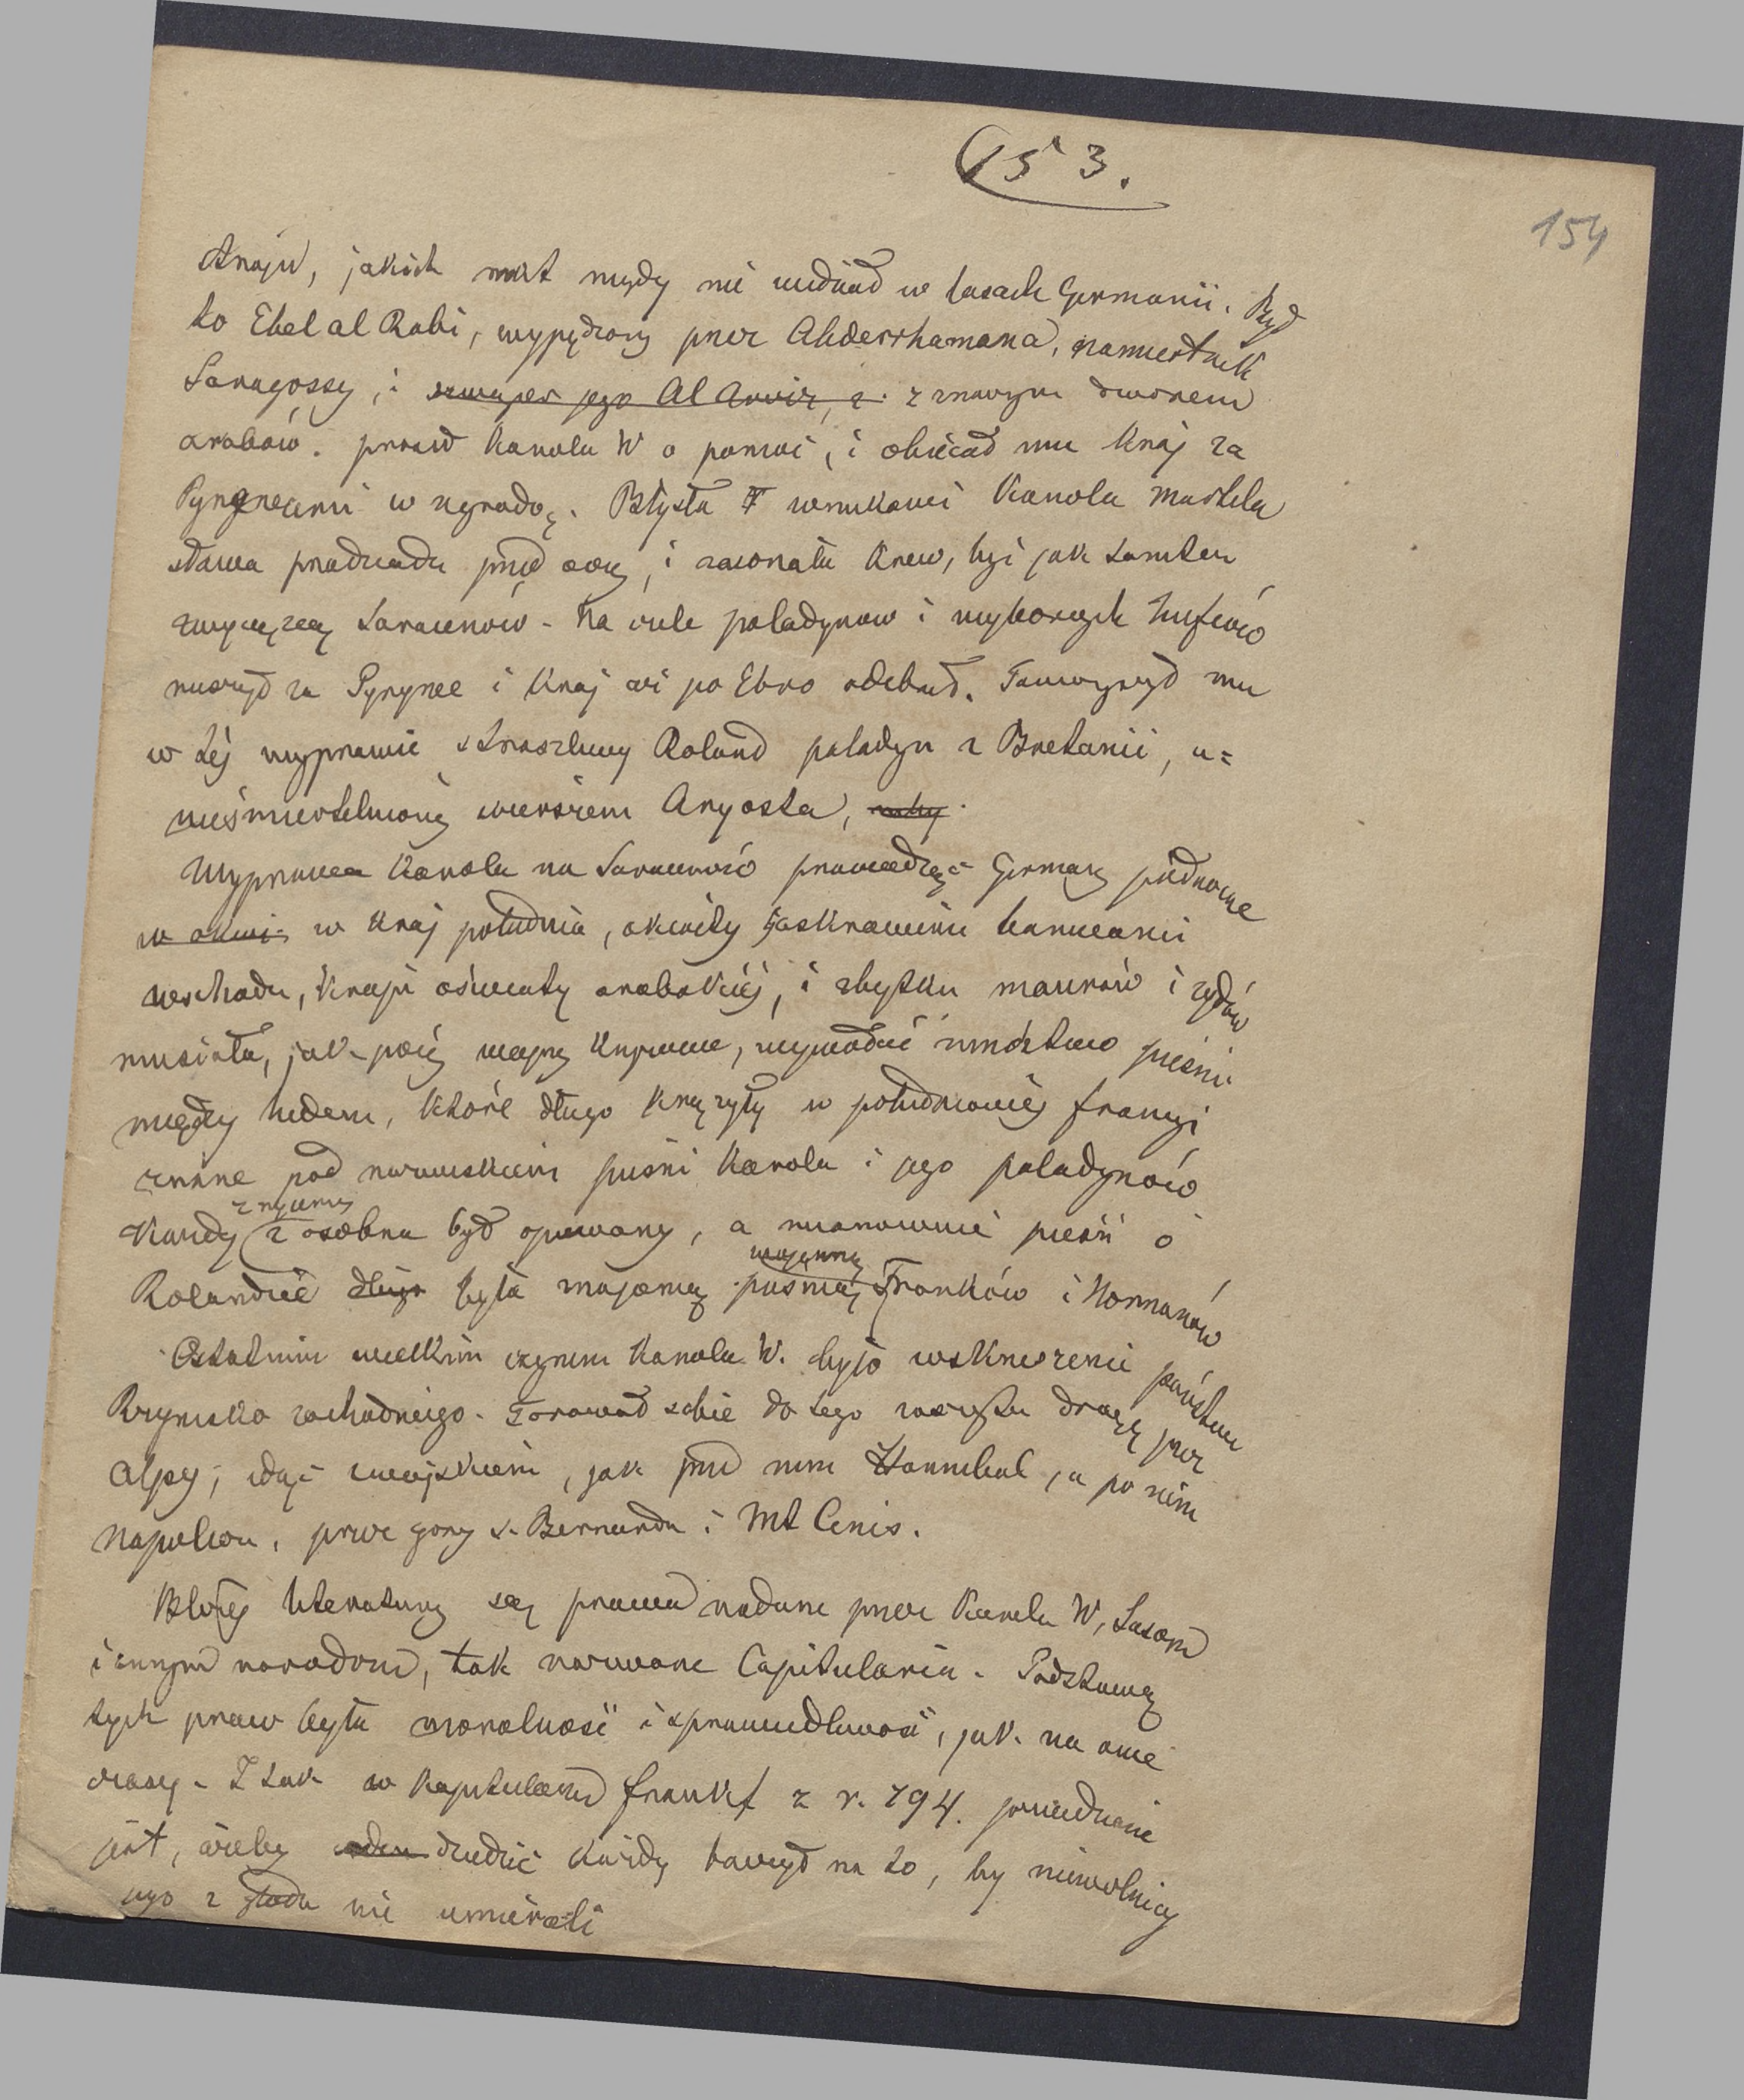 153.
154
strojów, jakich nikt nigdy nie widział w lasach Germanii. Był
to Ebel al Rabi, wypędzony przez Abderrhamana, namiestnik
Saragossy, i szwagier jego Al Arviz, z z znacznym dworem
arabów. prosił Karola W o pomoc, i obiecał mu kraj za
Pyryneami w nagrodę. Błysła wnukowi Karola Martela
sława pradziada przed oczy, i zawrzała krew, być jak tamten
zwycięzcą Saracenów. Na czele paladynów i wyborczych hufców
ruszył za Pyrynee i kraj aż po Ebro odebrał. Towarzyszył mu
w téj wyprawie straszliwy Roland paladyn z Bretanii, u=
nieśmiertelniony wierszem Aryosta,
Wyprawa Karola na Saracenów prowadząc Germany północne
w okwi- w kraj południa, okwity jaskrawemi barwami
wschodu, kraju oświaty arabskiéj, i zbytku maurów i żydów
musiała, jak późniéj wojny krzyżowe, wywołać mnóstwo pieśni
między ludem, które długo krążyły w południowéj francyi
znane pod nazwiskiem pieśni Karola i jego paladynów
z rycerzy
Każdy z osobna był opiewany, a mianowicie pieśń o
wojenną
Rolandzie długo była znajomą pieśnią Franków i Normanów
Ostatnim wielkim czynem Karola W. było wskrzeszenie państwa
Rzymsko zachodniego. Torował sobie do tego zaszczytu drogę przez
Alpy, idąc z wojskiem, jak przed nim Hannibal, a po nim
Napoleon, przez góry s. Bernarda i Mt Cenis.
Bliżéj literatury są prawa nadane przez Karola W, Sasom
i innym narodom, tak nazwane Capitularia. Podstawą
tych praw była moralność i sprawiedliwość, jak na owe
czasy. I tak w kapitularzu frankf z r. 794. powiedziane
jest, ażeby dziedzic każdy baczył na to, by niewolnicy
jego z głodu nie umierali